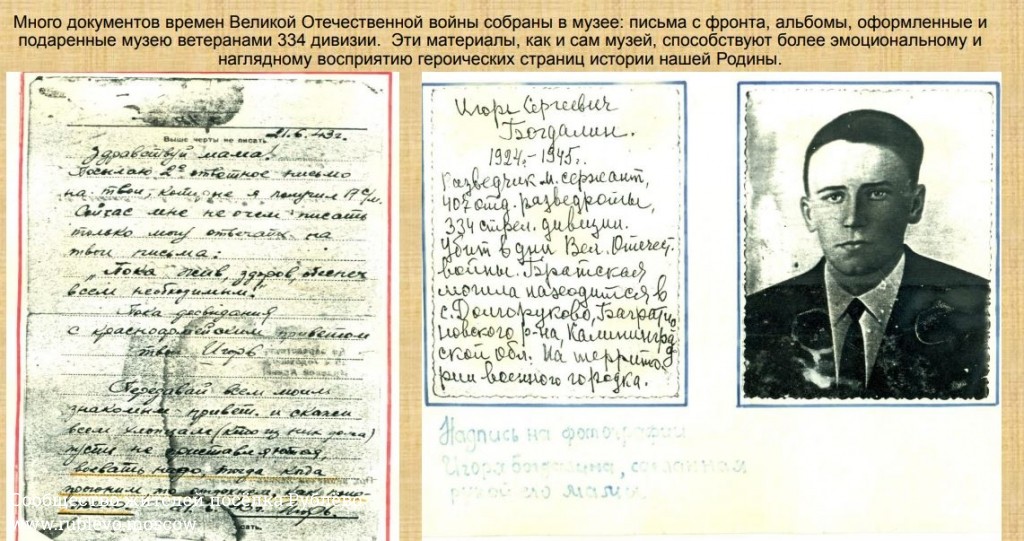 Много документов времен Великой Отечественной войны собраны в музее: письма с фронта, альбомы, оформленные и
подаренные музею ветеранами 334 дивизии. Эти материалы, как и сам музей, способствуют более эмоциональному и
наглядному восприятию героических страниц истории нашей Родины.
Выше черты не писать
21.6.43г.
Здравствуй мама!
Посылаю 2ое ответное письмо
на твои, которые я получил
Сейчас мне не о чем писать
только могу отвечать на
твои письма.
"Пока жив, здоров, обеспеч
всем необходимым."
Пока досвидания
с красноармейским приветом
твой Игорь
Передавай всем моим
знакомым привет и скажи
всем хлопцам (кто из них дома)
пусть не
воевать надо тогда когда
Игорь.
Игорь Сергеевич
Богдалин.
1924,-1945,.
Разведчик м. сержант,
407 отд. разведроты,
334 стрел. дивизии.
Убит в дни Вел. Отечест.
войны. Братская
могила находится в
с. Долгоруково, Баграти
оновского р-на, Калинингра
дской обл. На террито
рии военного городка.
Надпись на фотографии
Игоря Богдалина, сделанная
рукой его мамы.
Сообщество жителей поселка Рублево
www.rublevo.moscow